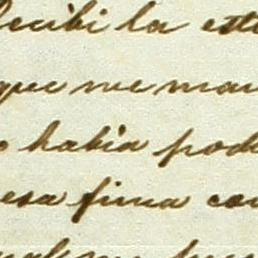 recibi la est
que me man
habia pod
esa fina co